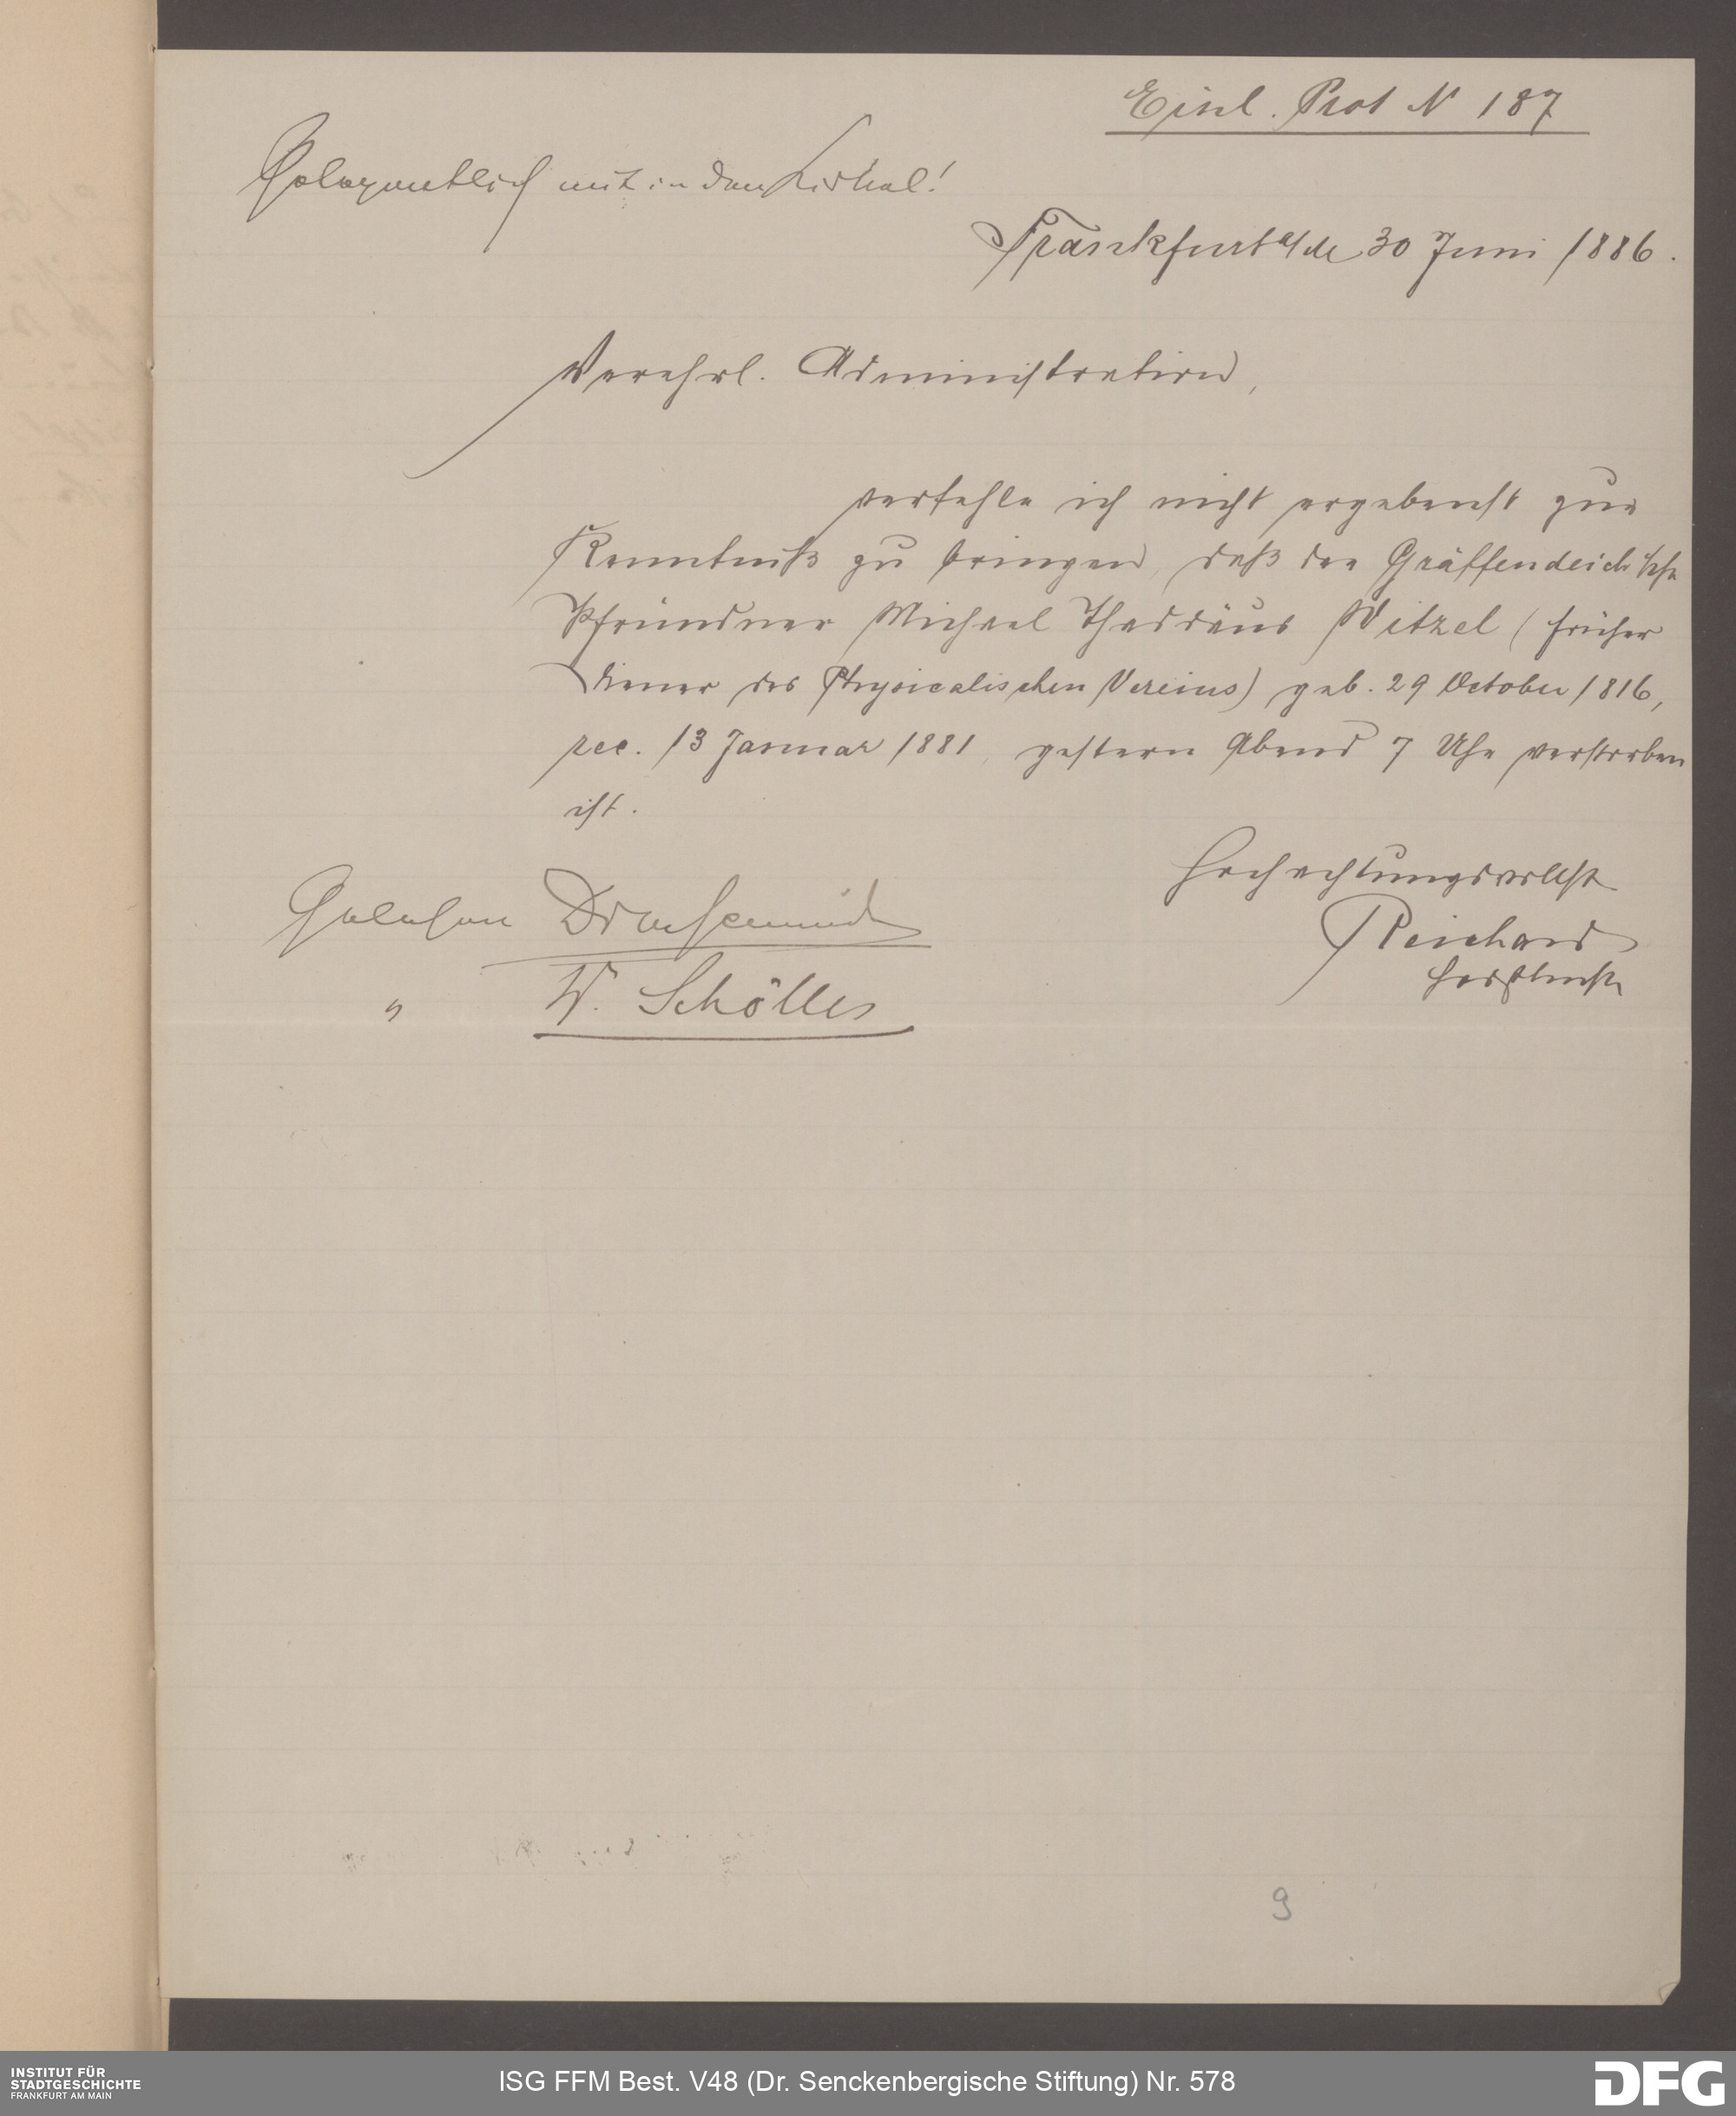 Einl. Prot N 187
Gelegentlich mit in den Zirkul!
Frankfurt a/M 30 Juni 1886.
Verehrl. Administration,
verfehle ich nicht ergebenst zur
Kenntniß zu bringen, daß der Gräffendeich'sche
Pfründner Michael Thaddäus Witzel (früher
Diener des Physicalischen Vereins) geb. 29 October 1816,
rec. 13 Januar 1881, gestern Abend 7 Uhr verstorben
ist.
Hochachtungsvollst
Reichard
Gelesen
" W. Schölles
9
INSTITUT FÜR
STADTGESCHICHTE
FRANKFURT AM MAIN
ISG FFM Best. V48 (Dr. Senckenbergische Stiftung) Nr. 578
DFG